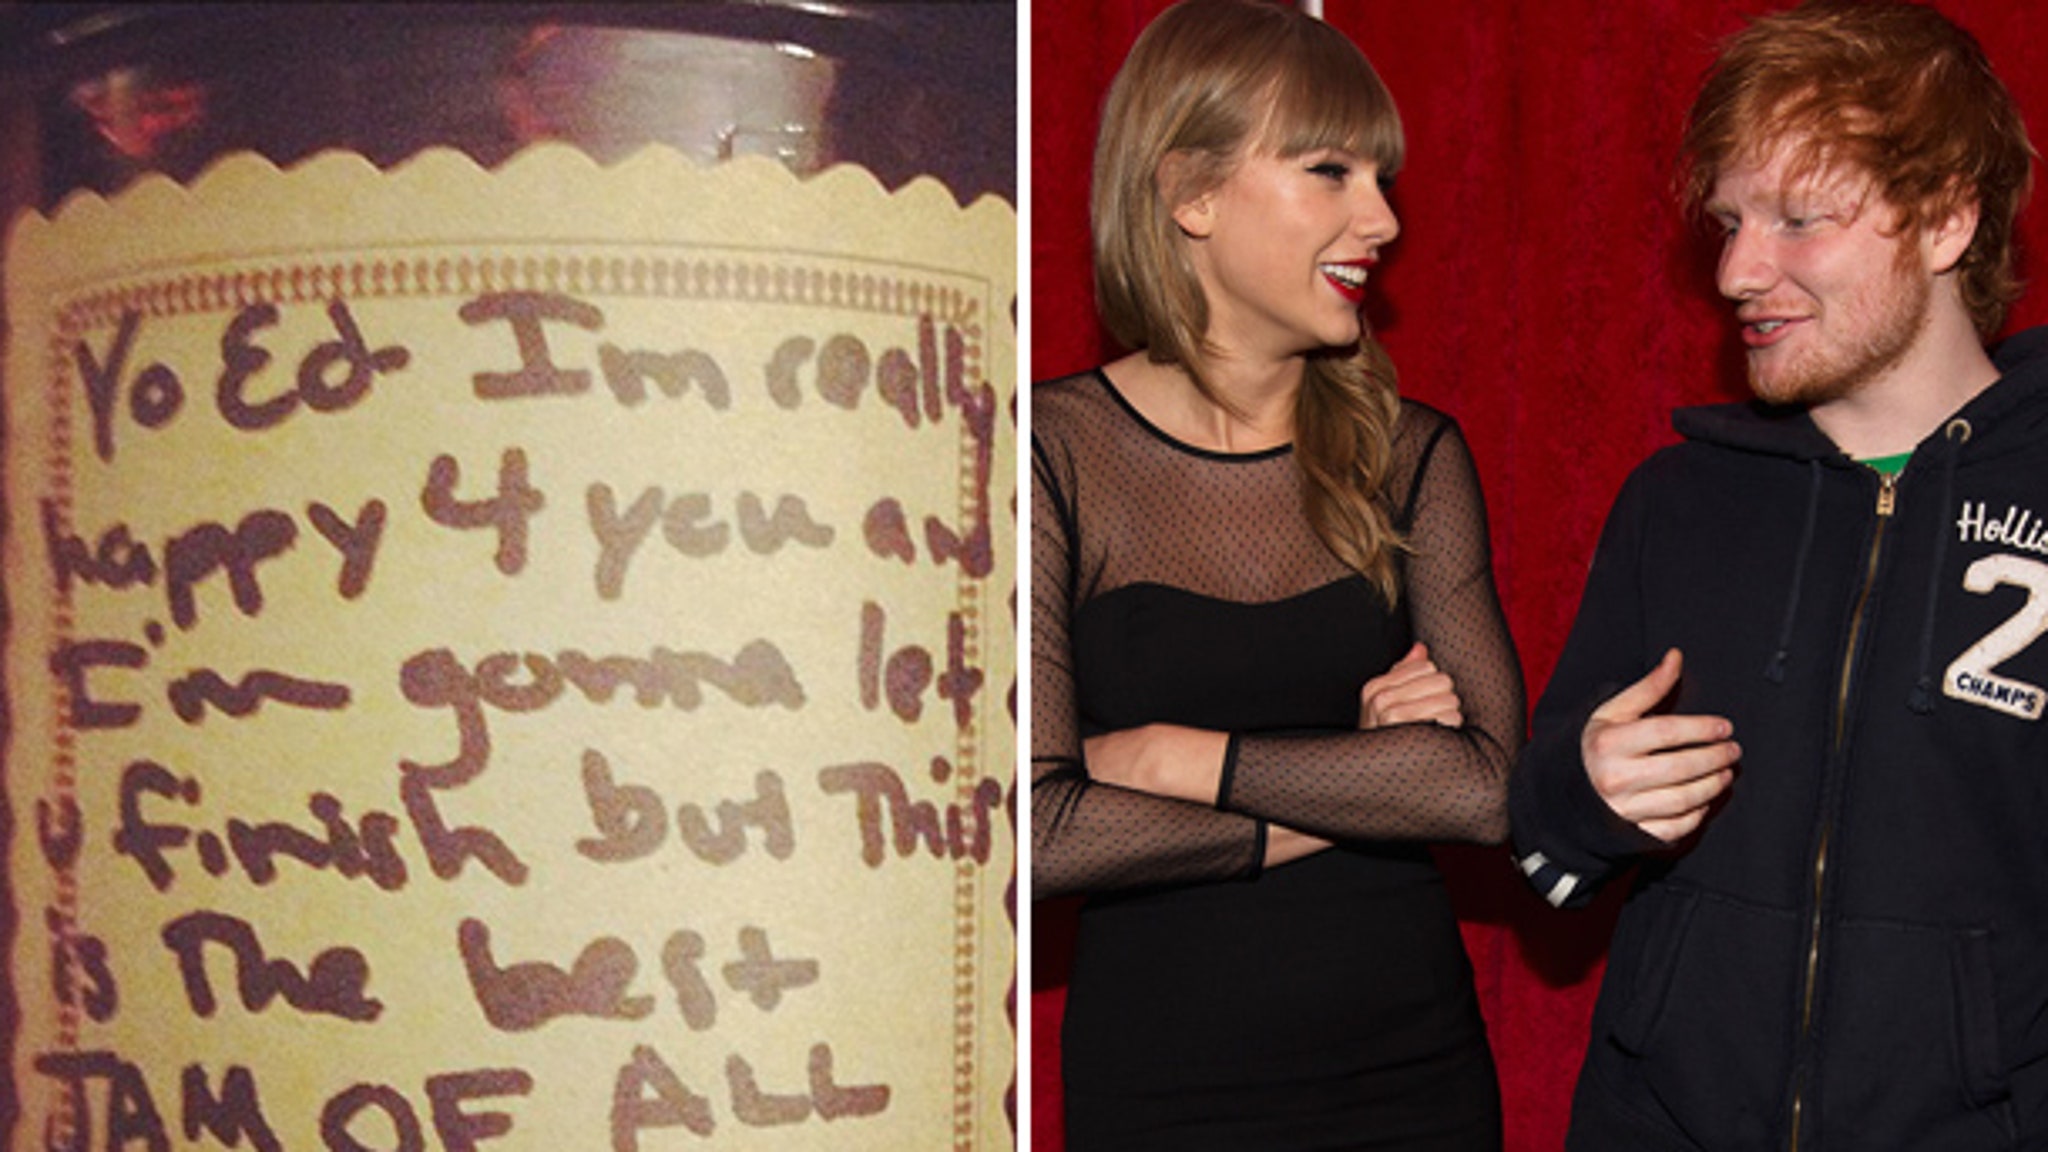 Yo Ed Im really
happy 4 you and
I'm gonna let
u finish but This
is The best
JAM OF ALL
Hollis
2
CHAMPS